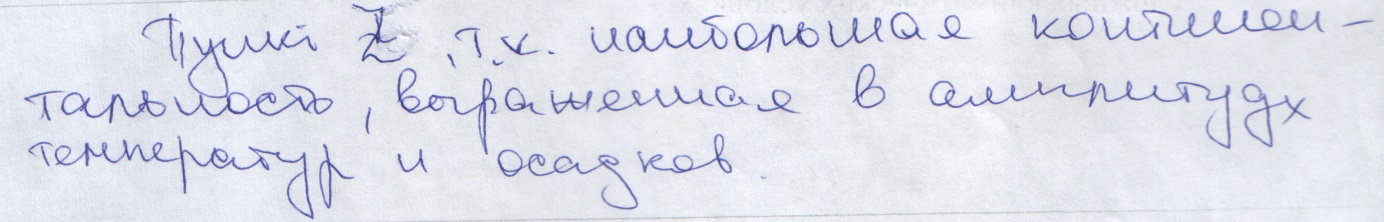 Пункт Z, т.к. наибольшая континен-
тальность, выраженная в амплитудх
температур и осадков.